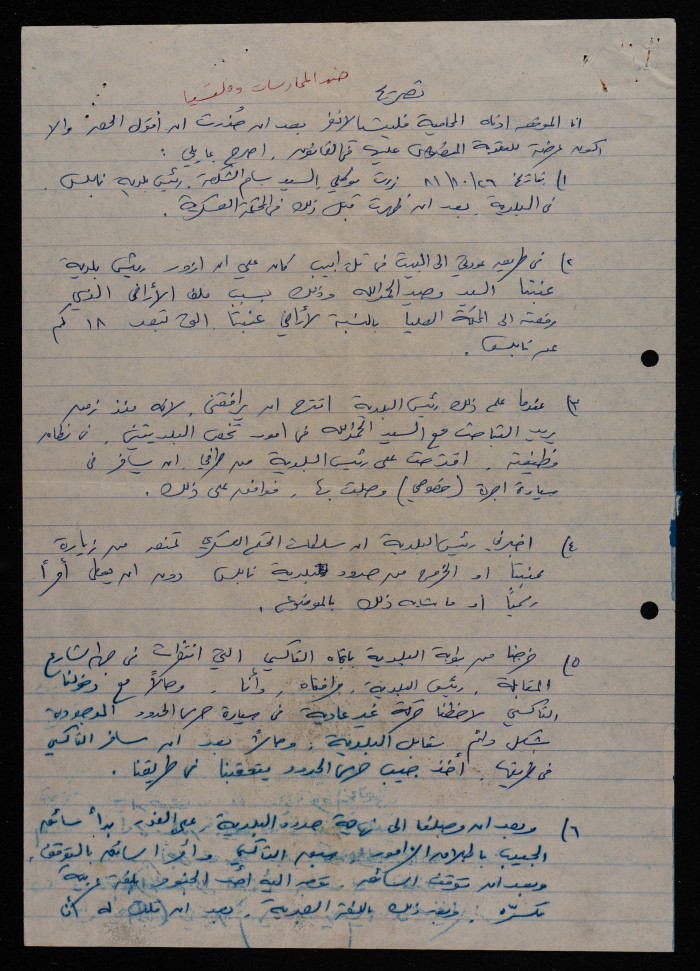 ضد الممارسات وملحقها
تصريح
انا الموقعه ادناه المحامية فليتسيا لانغر بعد ان حُذرت ان أقول الحق والا
اكون عرضة للعقوبة المنصوص عليها في القانون. اصرح بما يلي :
١) بتاريخ ٨١/١٠/٢٦ زرت موكلي السيد بسام الشكعة، رئيس بلدية نابلس،
في البلدية بعد ان ظهرت قبل ذلك في المحكمة العسكرية.
٢) في طريق عودتي الى البيت في تل ابيب كان علي ان ازور رئيس بلدية
عنبتا السيد وحيد الحمدالله وذلك بسبب ملف الأراضي الذي
رفعته الى المحكمة العليا بالنسبة لأراضي عنبتا التي تبعد ١٨ كم
عن نابلس.
٣) عندما علم ذلك رئيس البلدية اقترح ان يرافقني، لانه منذ زمن
يريد التباحث مع السيد الحمدالله في امور تخص البلديتين، في نطاق
وظيفته. اقترحت على رئيس البلدية من طرفي ان يسافر في
سيارة اجرة (خصوصي) وصلت بها، فوافق على ذلك.
٤) اخبرني رئيس البلدية ان سلطات الحكم العسكري تمنعه من زيارة
عنبتا او الخروج من حدود بلدية نابلس دون ان يعطى أمراً
رسمياً أو ما شابه ذلك بالموضوع.
٥) خرجنا من بوابة البلدية باتجاه التاكسي التي انتظرت في جهة الشارع
المقابلة، رئيس البلدية، مرافقاه، وأنا. وحالاً مع دخولنا
التاكسي لاحظنا حركة غير عادية في سيارة حرس الحدود الموجودة
بشكل دائم مقابل البلدية، وحالاً بعد ان سافر التاكسي
في طريقها، أخذ جيب حرس الحدود يتعقبنا في طريقنا.
٦) وبعد ان وصلنا الى نهاية حدود البلدية على الفور بدأ سائق
الجيب باطلاق الزامور التاكسي وأمر السائق بالتوقف،
وبعد ان توقف السائق، توجه اليه أحد الجنود بلغة عربية
مكسرة، وبعد ذلك باللغة العبرية. بعد ان قلت له أنا